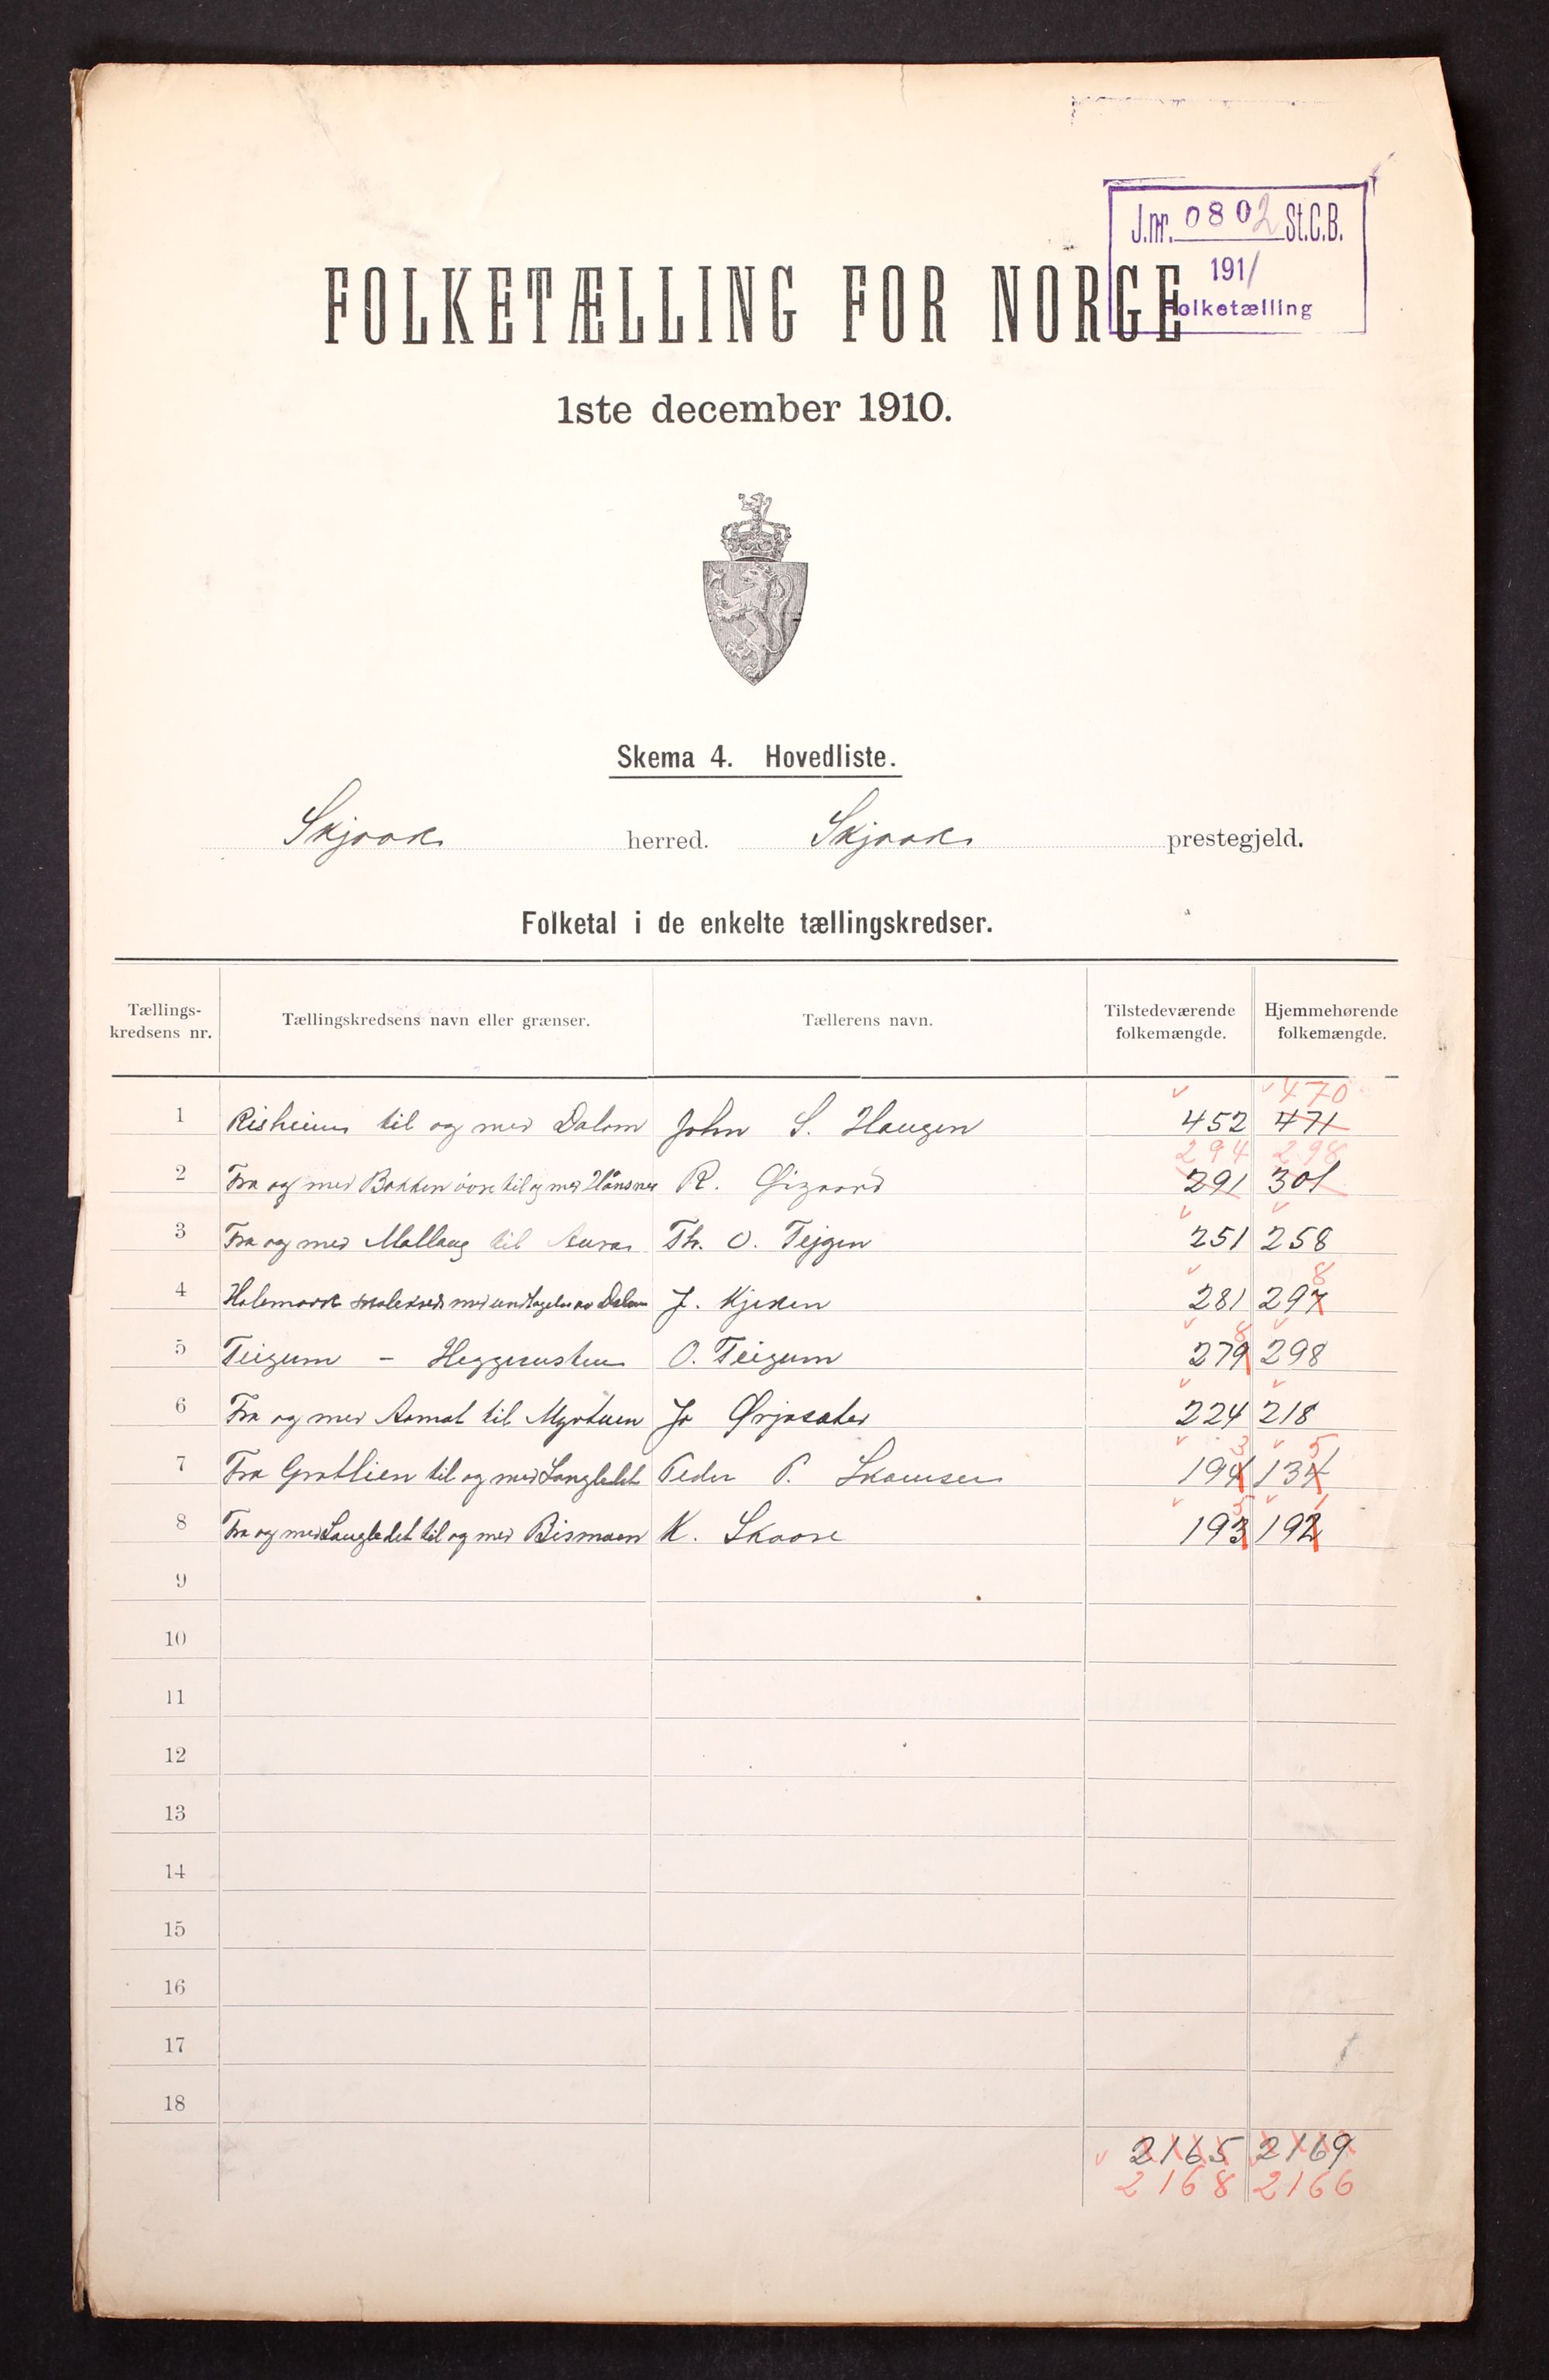 J.nr. 0802 St.C.B.
1911
Folketælling
FOLKETÆLLING FOR NORGE
1ste december 1910.
Skema 4. Hovedliste.
Skjaak herred. Skjaak prestegjeld.
Folketal i de enkelte tællingskredser.
Tællings-kredsens nr. Tællingskredsens navn eller grænser. Tællerens navn. Tilstedeværende folkemængde. Hjemmehørende folkemængde.
470
1 Risheim til og med Dalom John S. Haugen 452 471
294 298
2 Fra og med Bakken øvre til og med R. Øigaard 291 301
3 Fra og med Mallaug til Th. O. Tejgen 251 258
8
4 med undtagelse av Dalom J. Kjeken 281 297
8
5 Teigum - Heggerusten O. Teigum 279 298
6 Fra og med Aamot til Myrtuen Jo Ørjasæter 224 218
3 5
7 Fra Grotlien til og med Langledet Peder P. Skamsar 194 134
5 1
8 Fra og med Langledet til og med Bismoen K. Skaare 193 192
9
10
11
12
13
14
15
16
17
18
2165 2169
2168 2166